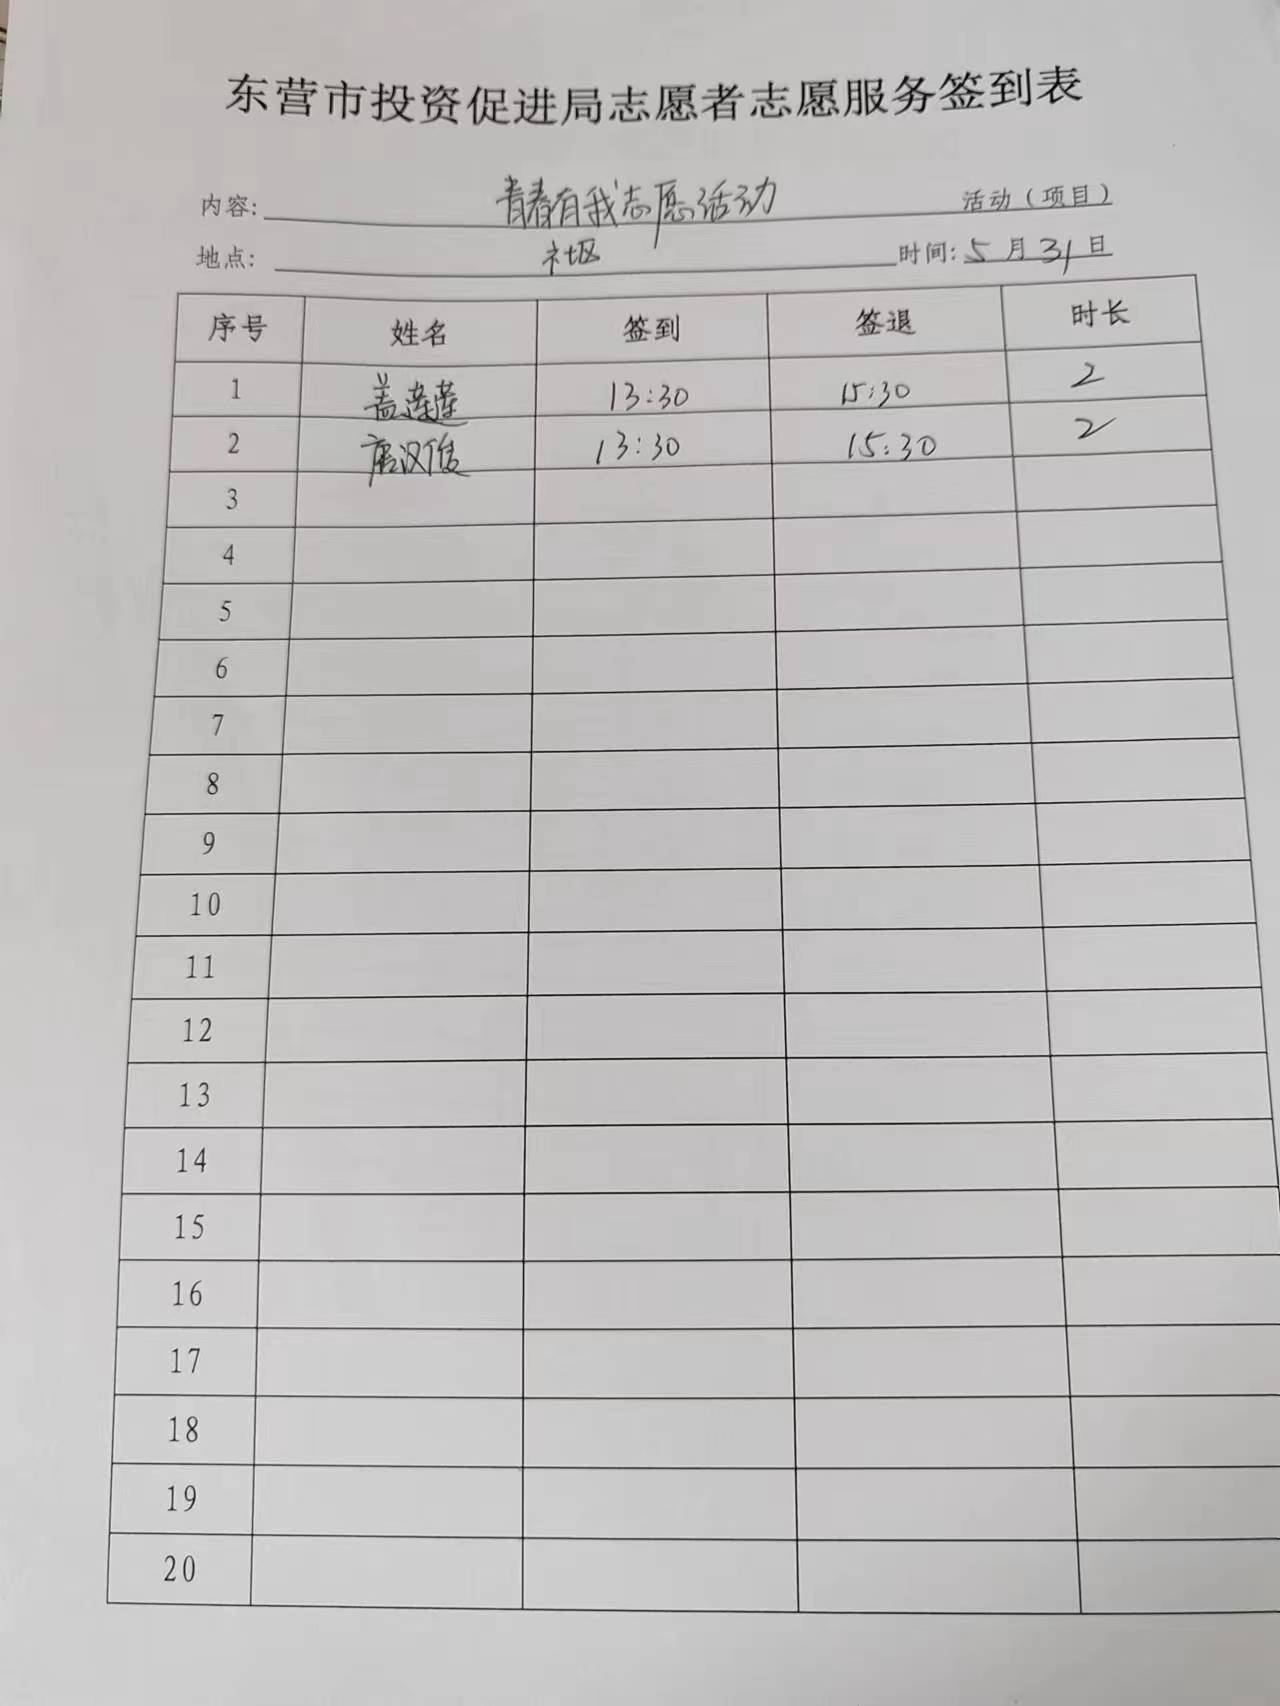 东营市投资促进局志愿者志愿服务签到表
内容: 青春有我志愿活动 活动（项目）
地点: 社区 时间: 5 月 31 日
序号 姓名 签到 签退 时长
1 盖莲莲 13:30 15:30 2
2 唐汉俊 13:30 15:30 2
3
4
5
6
7
8
9
10
11
12
13
14
15
16
17
18
19
20